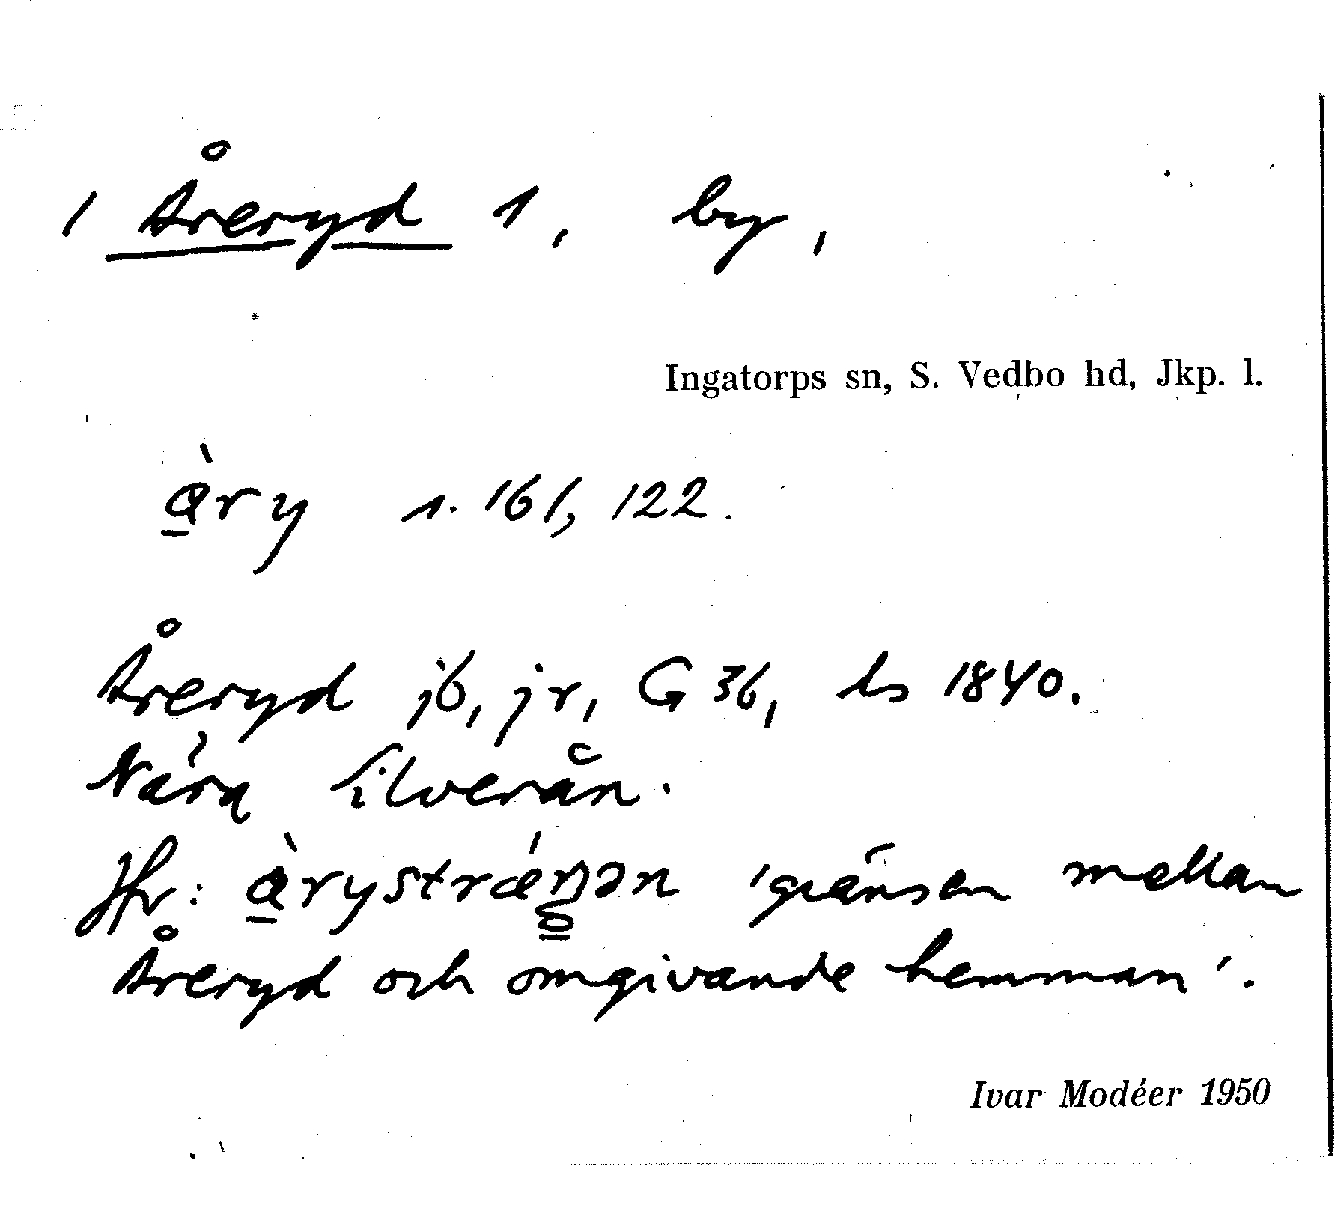 1 Åreryd 1, by,
Ingatorps sn, S. Vedbo hd, Jkp. l.
à̲ry s. 161, 122.
Åreryd jb, jr, G 36, ls 1840.
Nära Silverån.
Jfr: à̲rystrǽŋən 'gränsen mellan
Åreryd och omgivande hemman'.
Ivar Modéer 1950